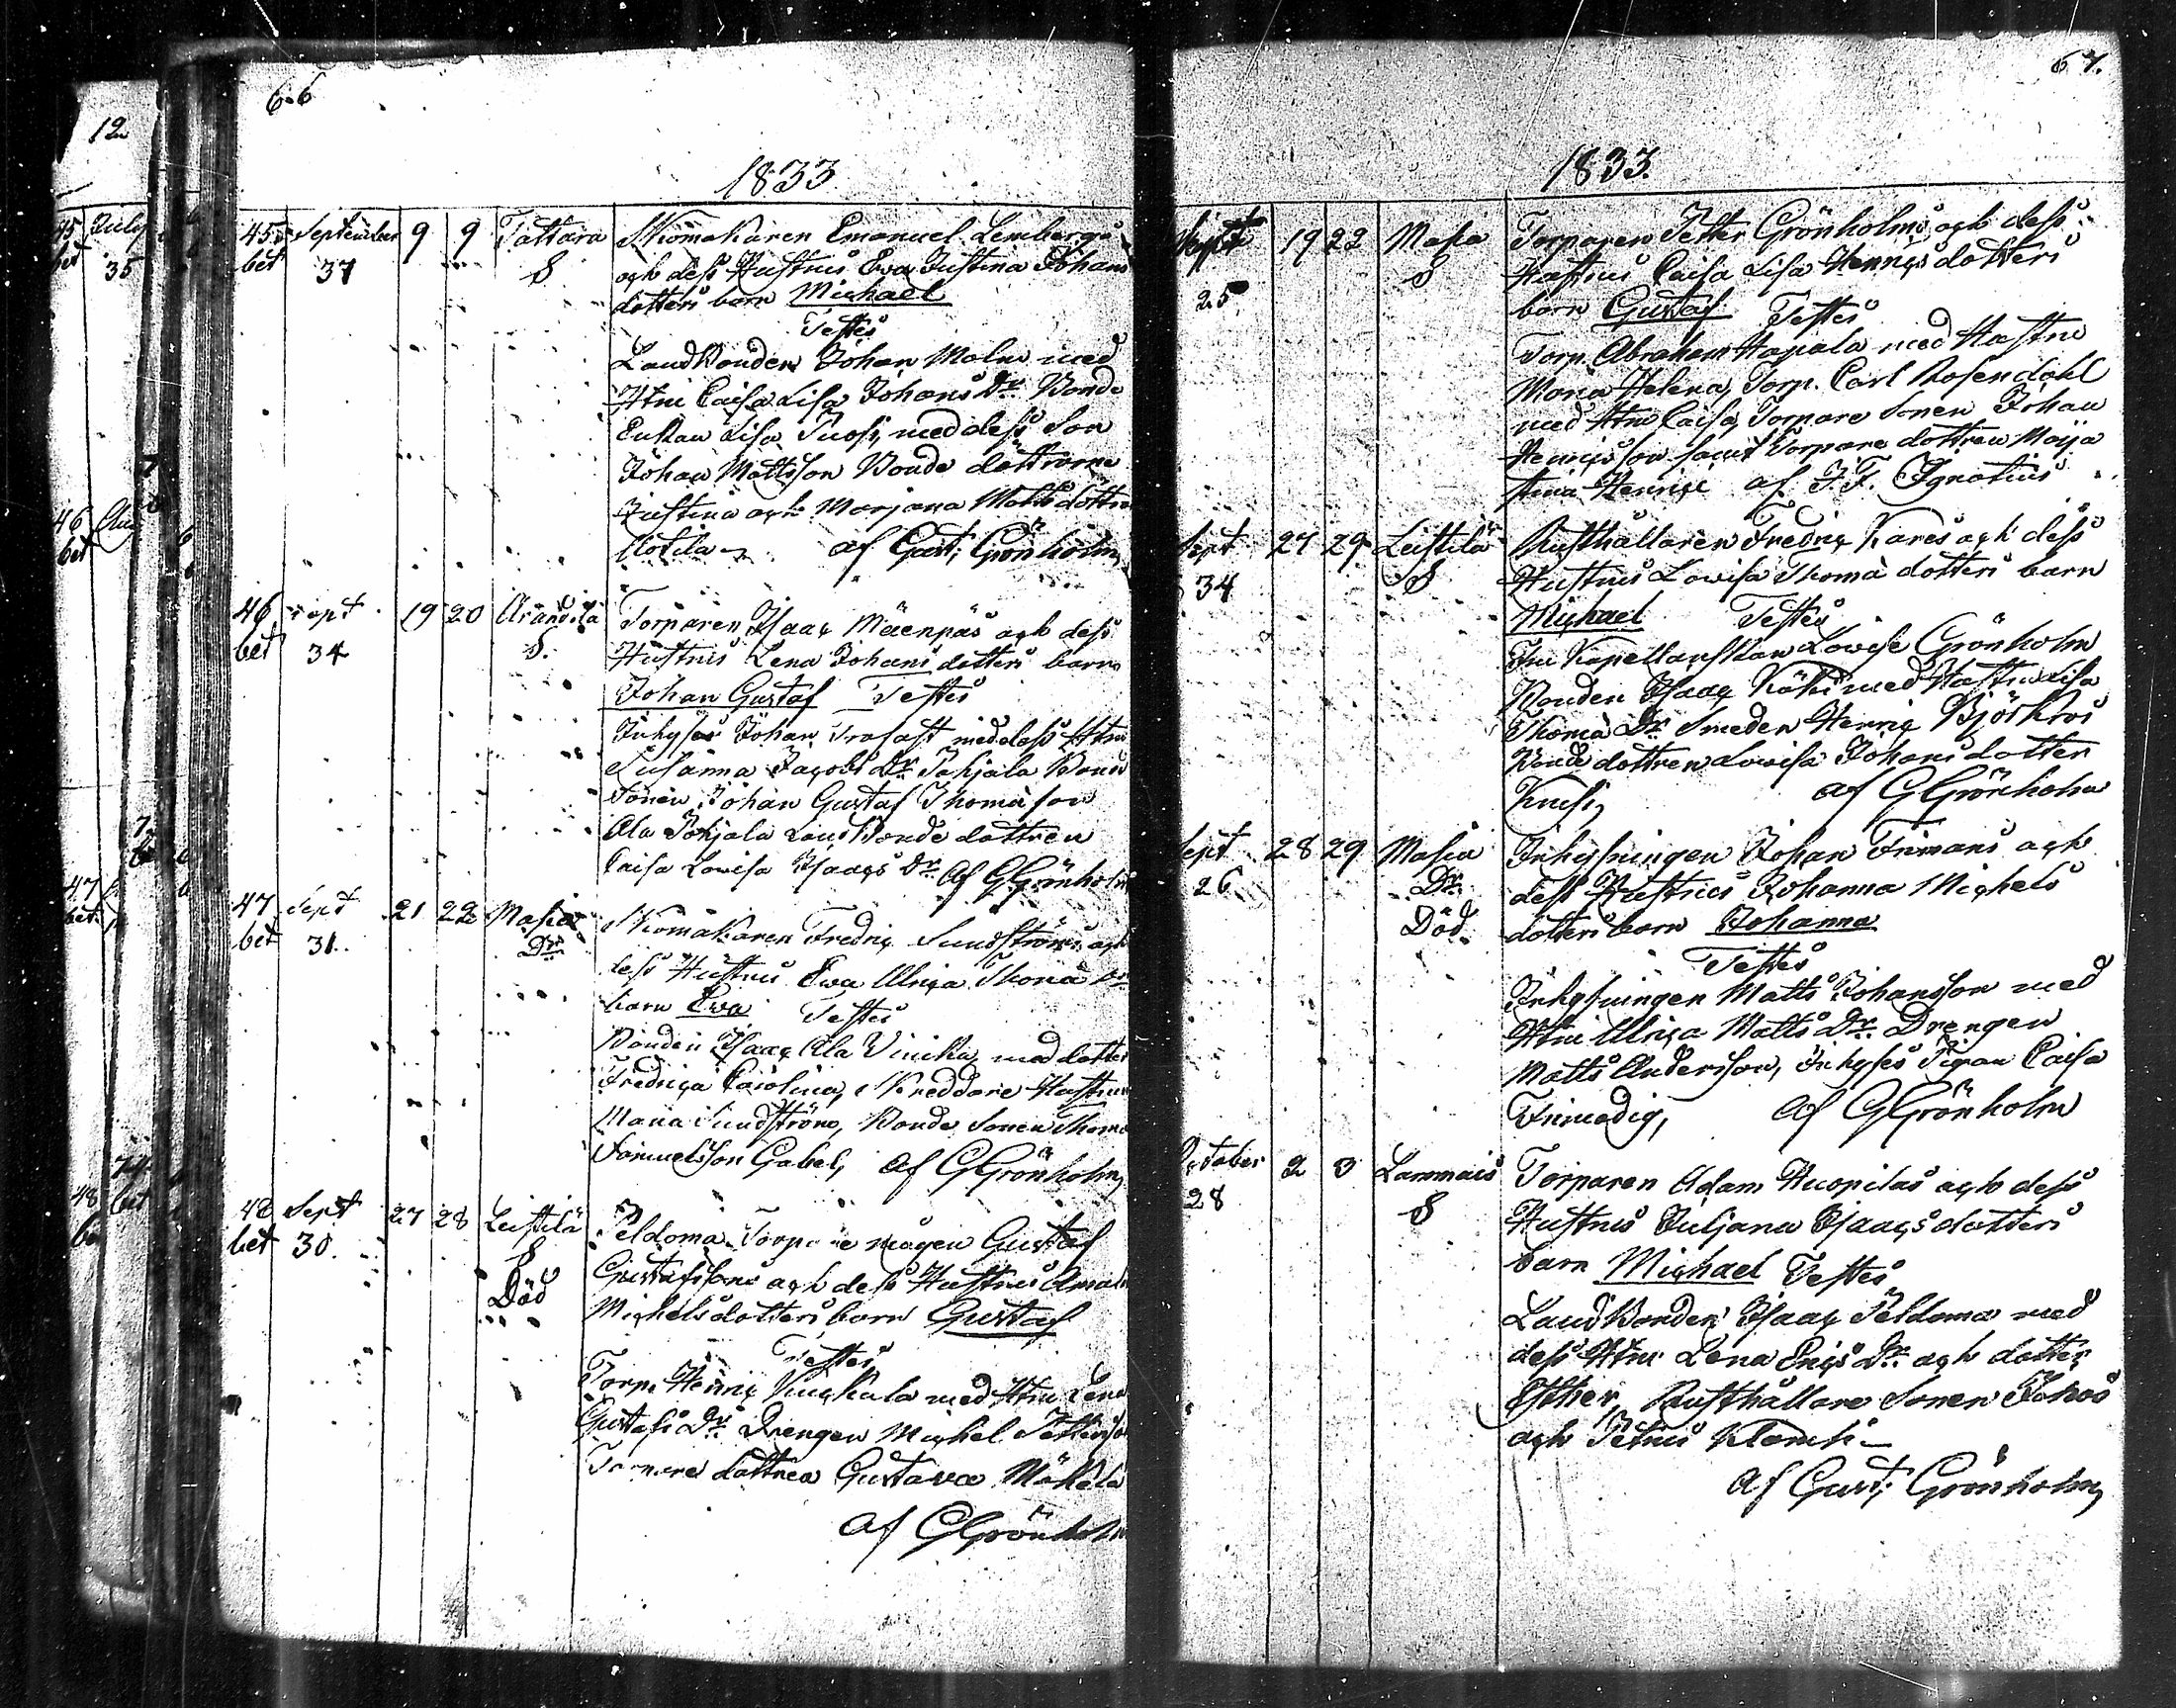 12
45 July
bet
35
46 Aug
bet
47
bet
48
66
1833
45 September 9 9 Tattara Skomakaren Emanuel Lembergs
bet 37 S och dess Hustrus Ewa Justina Johans
dotters barn Michael
Testes
Landbonden Johan Malm med
Htru Caisa Lisa Johans Dr Bonde
Enkan Lisa med dess Son
Johan Mattsson Bonde döttrarne
Justina och Marjana Matts dottrar
af Gust; Grönholm
46 Sept 19 20 Arandila Torparen Isaac Mäenpäs och dess
bet 34 S. Hustrus Lena Johans dotters barn
Johan Gustaf Testes
Inhyses Johan med dess Htru
Susanna Jacobs Dr Pohjala Bonde
Sonen Johan Gustaf Thomasson
Ala Pohjala Land Bonde dottren
Caisa Lowisa Isaacs Dr af GGrönholm
47 Sept 21 22 Masia Skomakaren Fredric Sundströms och
bet 31. Dr dess Hustrus Ewa Ulrica Thoma Dr
barn Ewa Testes
Bonden Isaac Ala Vinika med dotter
Fredrica Carolina, Skreddare Hustrun
Maria Sundström, Bonde Sonen Thomas
Samuelsson Gabel, af GGrönholm
48 Sept 27 28 Leistilä Peldoma Torpare mågen Gustaf
bet 30. S Gustafssons och dess Hustrus Amal
Död Michelsdotters barn Gustaf
Testes
Torp. Henric Kuckala med Htru Lena
Gustafs Dr Drengen Michel Petterson
Torpare dottren Gustava Mäkilä
af GGrönholm
67.
1833.
Sept 19 22 Masia Torparen Petter Grönholms och dess
25 S Hustrus Caisa Lisa Henrics dotters
barn Gustaf Testes
Torp. Abraham Hapala med Hustru
Maria Helena, Torp. Carl Rosendahl
med Htru Caisa, Torpare Sonen Johan
Henricsson samt Torpare dottren Maja
Stina Henric af J.F. Ignatius
Sept 27 29 Leistilä Rusthållaren Fredric Kares och dess
34 S Hustrus Lowisa Thoma dotters barn
Michael Testes
Fru Kapellanskan Lovise Grönholm
Bonden Isaac Köhi med Hustru Lisa
Thoma Dr Smeden Henric Björkros
Bonde dottren Lowisa Johans dotter
Knusi, af GGrönholm
Sept 28 29 Masia Inhysningen Johan Frimans och
26 Dr dess Hustrus Johanna Michels
Död dotters barn Johanna
Testes
Inhysningen Matts Johansson med
Htru Ulrica Matts Dr Drengen
Matts Andersson, Inhyses Pigan Caisa
Frimodig, af GGrönholm
October 2 3 Lammais Torparen Adam Huopilas och dess
28 S Hustrus Juljana Isaacs dotters
barn Michael Testes
Land Bonden Isaac Peldoma med
dess Htru Lena Erics Dr och dotter
Esther, Rusthållare Sonen
och Petrus Klemi
af Gust; Grönholm